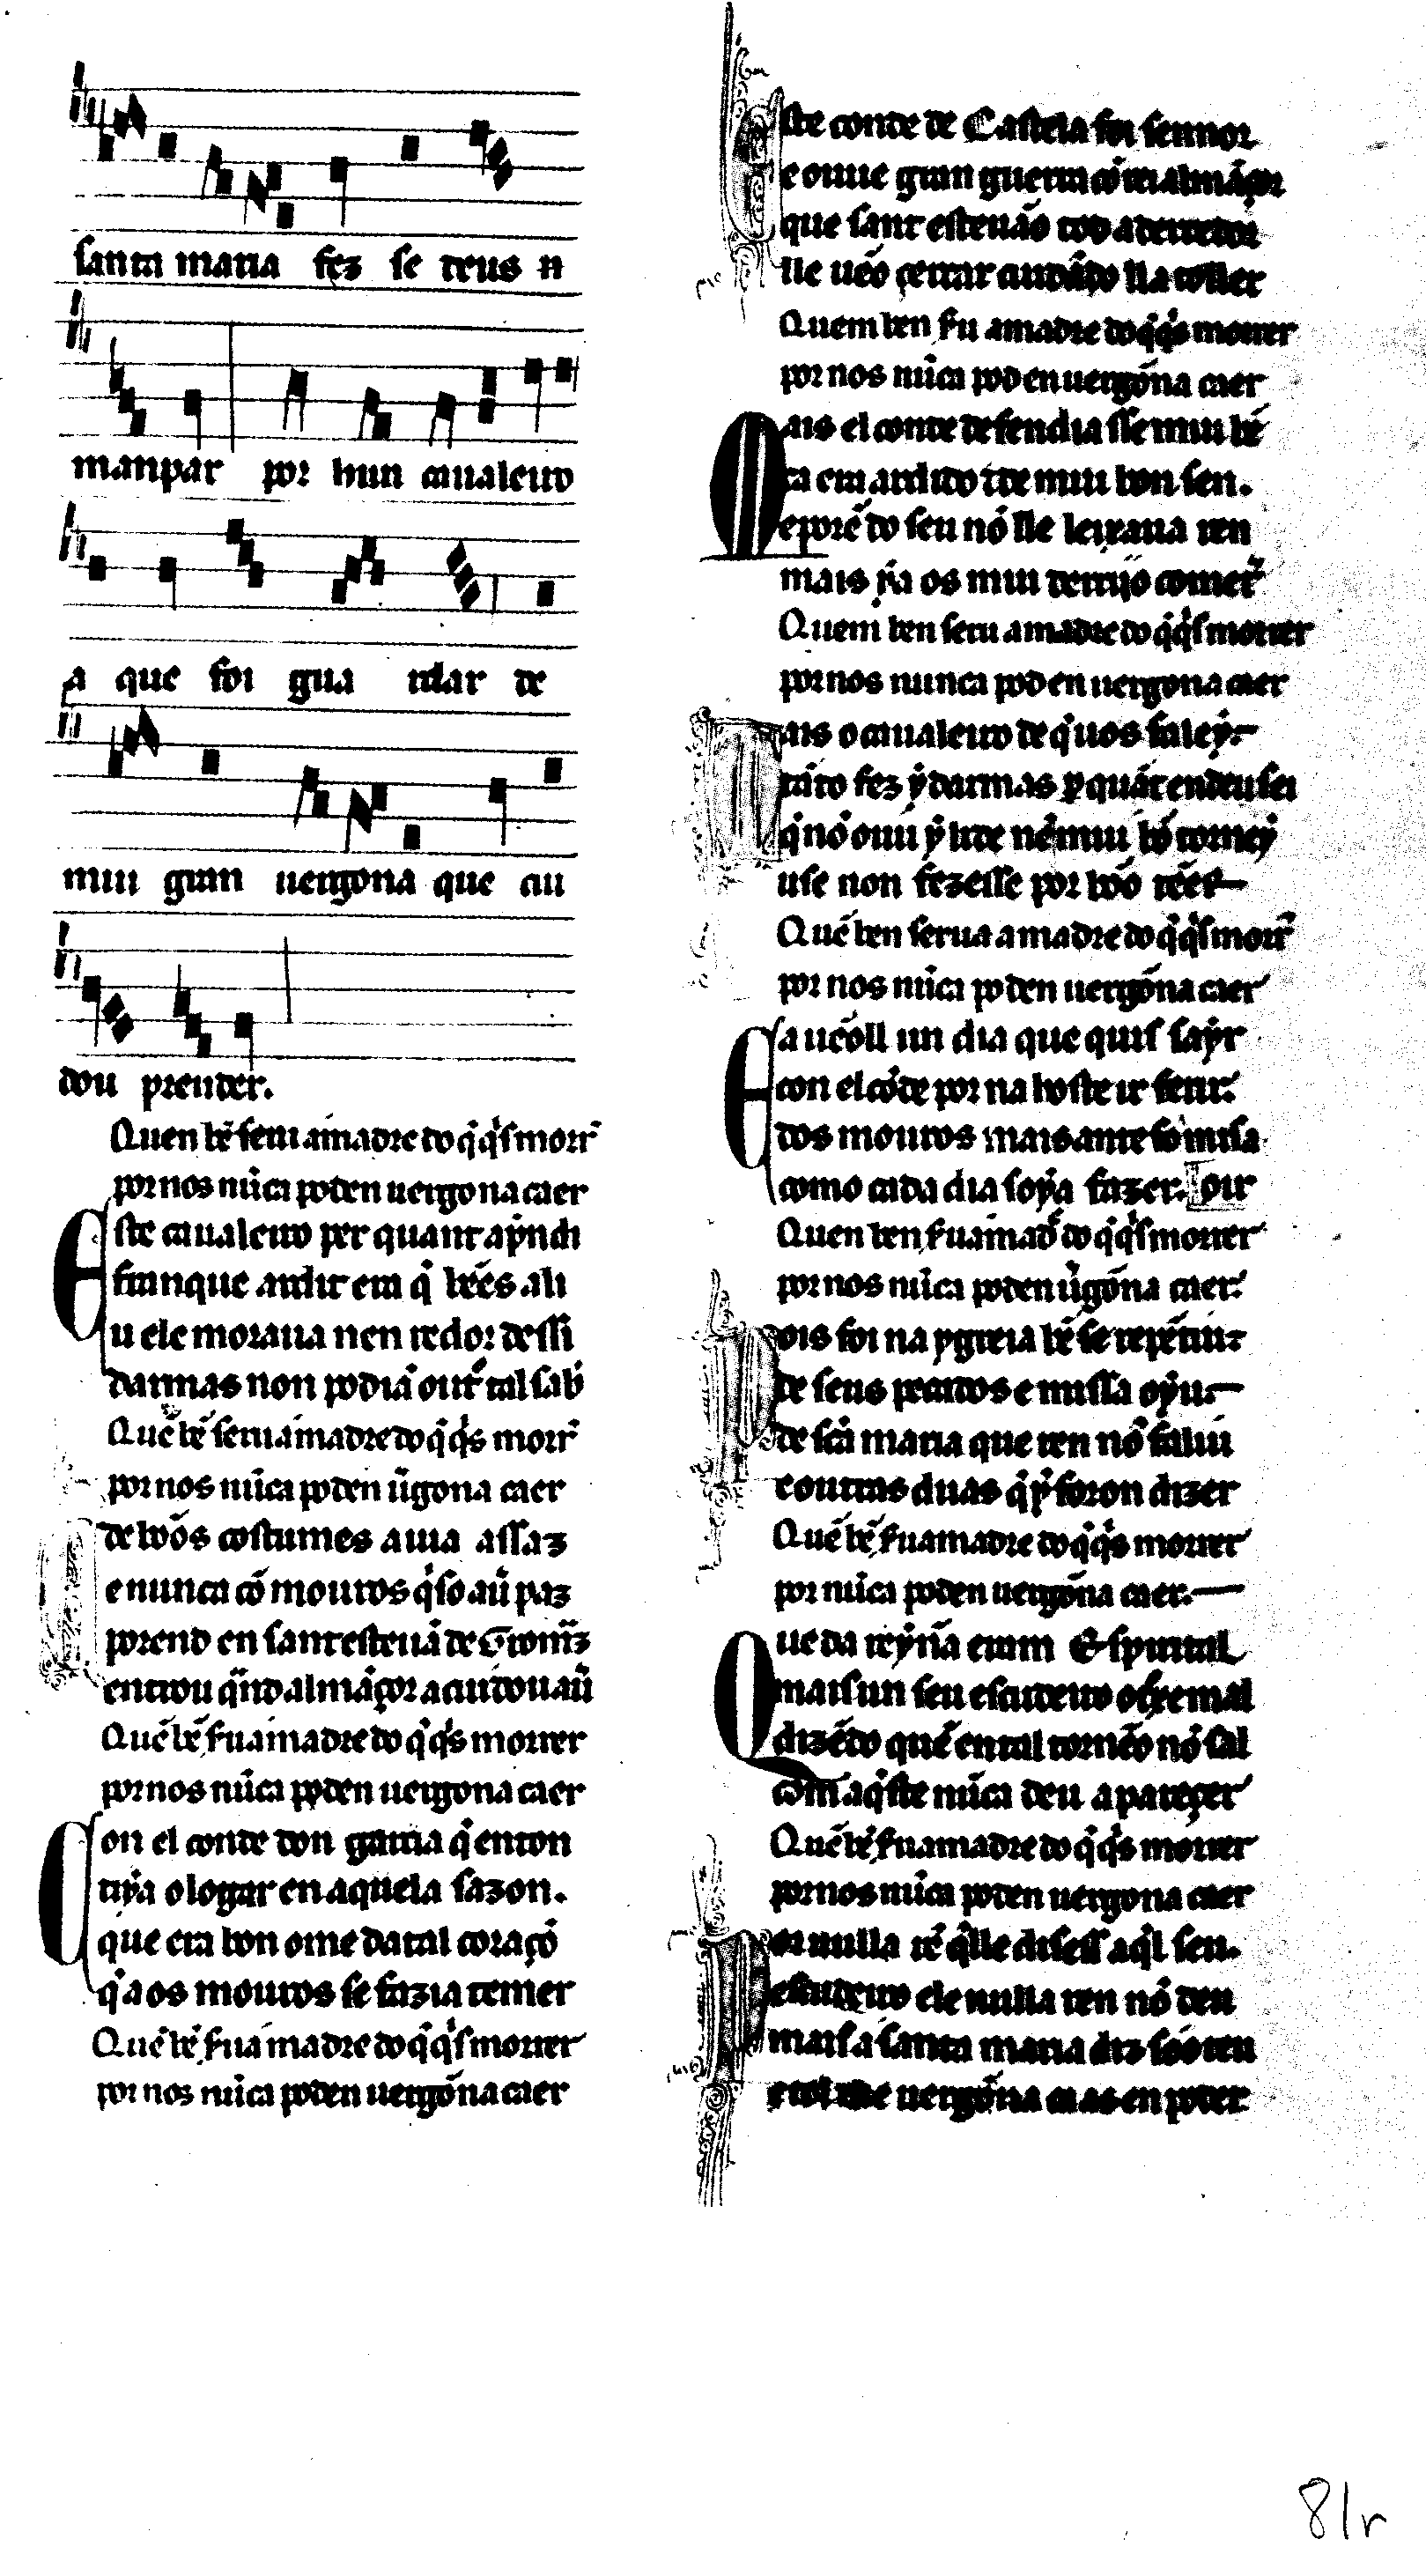 santa maria fez se deus ñ
manpar por hun caualeiro
a que foi gua rdar de
mui gran uergonna que cui
dou prender.
Quen bẽ serui a madre do q̇ q̇s morr̃
por nos nũca poden uergonna caer
Este caualeiro per quant aprendi
franque ardit era q̇ bẽes ali
u ele moraua nen redor dessi
darmas non podiã out̃ tal sab̃
Quẽ bẽ serui a madre do q̇ q̇s morr̃
por nos nũca poden ũgonna caer
de bõos costumes auia assaz
e nunca cõ mouros q̇so auer̃ paz
porend en sant esteuã de Gormaz
entrou quãdo almãçor a cuidou auer̃
Quẽ bẽ serua a madre do q̇ q̇s morrer
por nos nũca poden uergonna caer
Con el conde don garcia q̇ enton
tiÿa o logar en aquela sazon.
que era bon ome da tal coraçõ
q̇ a os mouros se fazia temer
Quẽ bẽ serua a madre do q̇ q̇s morrer
por nos nũca poden uergõna caer
Este conde de Castela foi sennor
e ouue gran guerra cõ rei almãçor
que sant esteuão tod a derredor
lle uẽo çercar cuidãdo lla toller
Quem ben seru a madre do q̇ q̇s morrer
por nos nũca pod en uergõna caer
Mais el conde defendia sse mui bẽ
ca era ardido e de mui bon sen.
e porẽ do seu nõ lle leixaua ren
mais ÿa os mui derrijo comet̃
Quem ben seru a madre do q̇ q̇s morrer
por nos nunca pod en uergona caer
Mais o caualeiro de q̇ uos faley.
tãto fez ÿ darmas per quãt end eu sei
q̇ nõ ouui ÿ lide nẽ mui bõ torney
u se non fezesse por bõo tẽer
Quẽ ben serua a madre do q̇ q̇s morr̃
por nos nũca poden uergõna caer
E a uẽo ll un dia que quis sayr
con el cõde por na hoste ir ferir.
dos mouros mais ante foi missa
como cada dia soÿa fazer. oir
Quen ben serua a madr̃ do q̇ q̇s morrer
por nos nũca poden ũgõna caer.
Pois foi na ygreia bẽ se repẽtiu.
de seus pecados e missa oyu.
de sc̃a maria que ren nõ faliu
e outras duas q̇ ÿ foron dizer
Quẽ bẽ serua a madre do q̇ q̇s morrer
por nũca poden uergõna caer.
Que da reÿna eram Esp̃ital
mais un seu escudeiro o fre mal
dizẽdo quẽ en tal tornẽo nõ sal
com aq̇ste nũca deu a pareçer
Quẽ bẽ serua a madre do q̇ q̇s morrer
por nos nũca poden uergona caer
Por nulla rẽ q̇ lle disess aq̇l seu.
escudeiro ele nulla ren nõ deu
mais a santa maria diz sõo teu
e tol me uergõna ca as en poder
81r